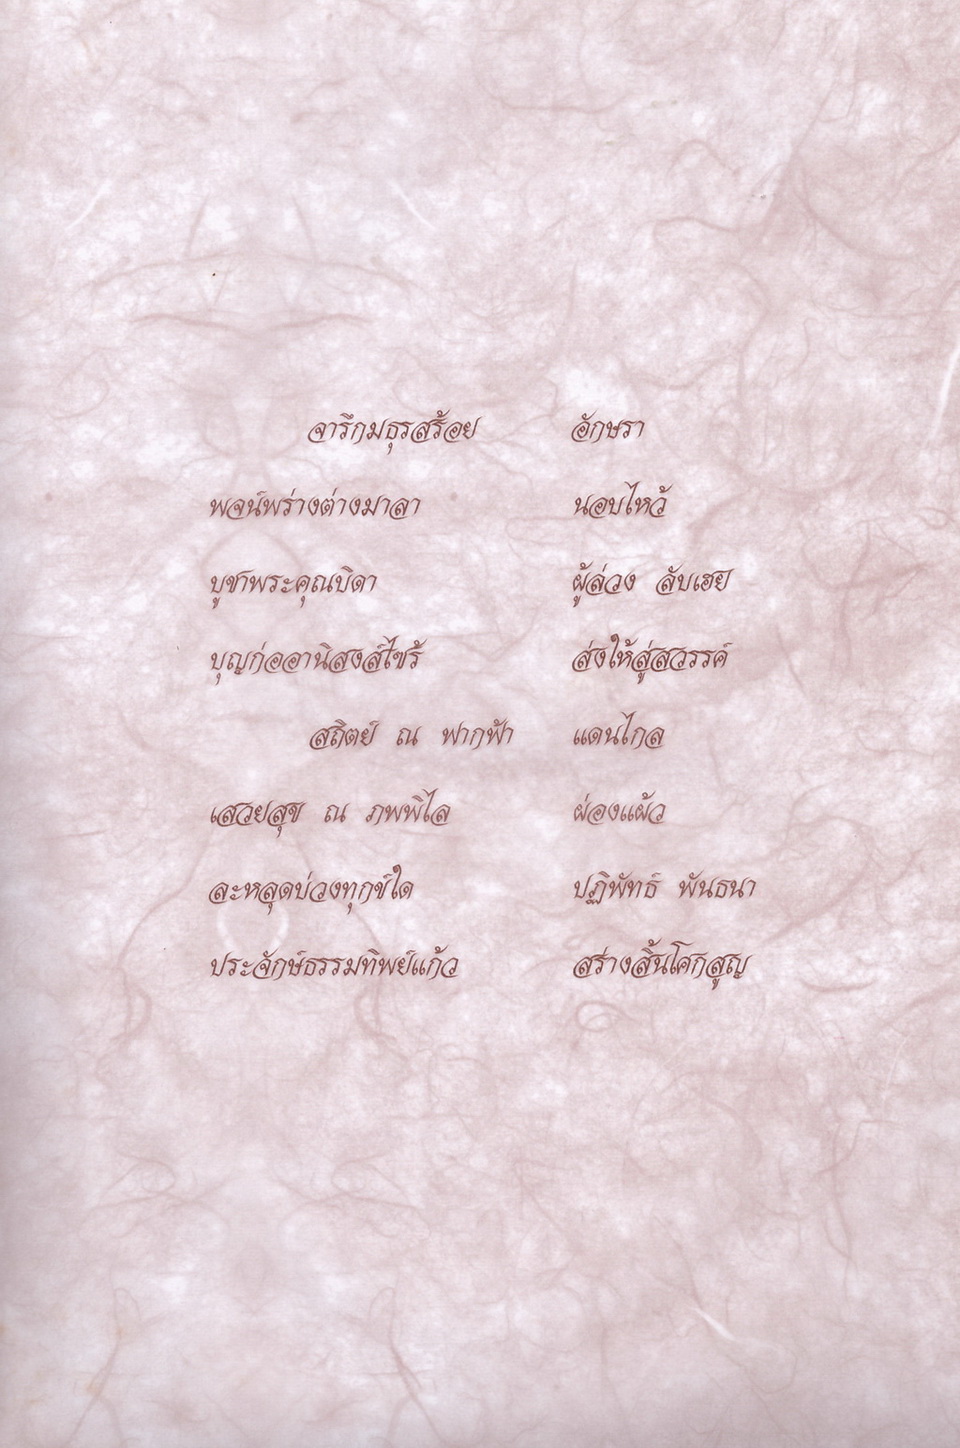 จารึกมธุรสร้อย อักษรา
พจน์พร่างต่างมาลา นอบไหว้
บูชาพระคุณบิดา ผู้ล่วง ลับเฮย
บุญก่ออานิสงส์ไซร้ ส่งให้สู่สวรรค์
สถิตย์ ณ ฟากฟ้า แดนไกล
เสวยสุข ณ ภพพิไล ผ่องแผ้ว
ละหลุดบ่วงทุกข์ใด ปฏิพัทธ์ พันธนา
ประจักษ์ธรรมทิพย์แก้ว สร่างสิ้นโศกสูญ